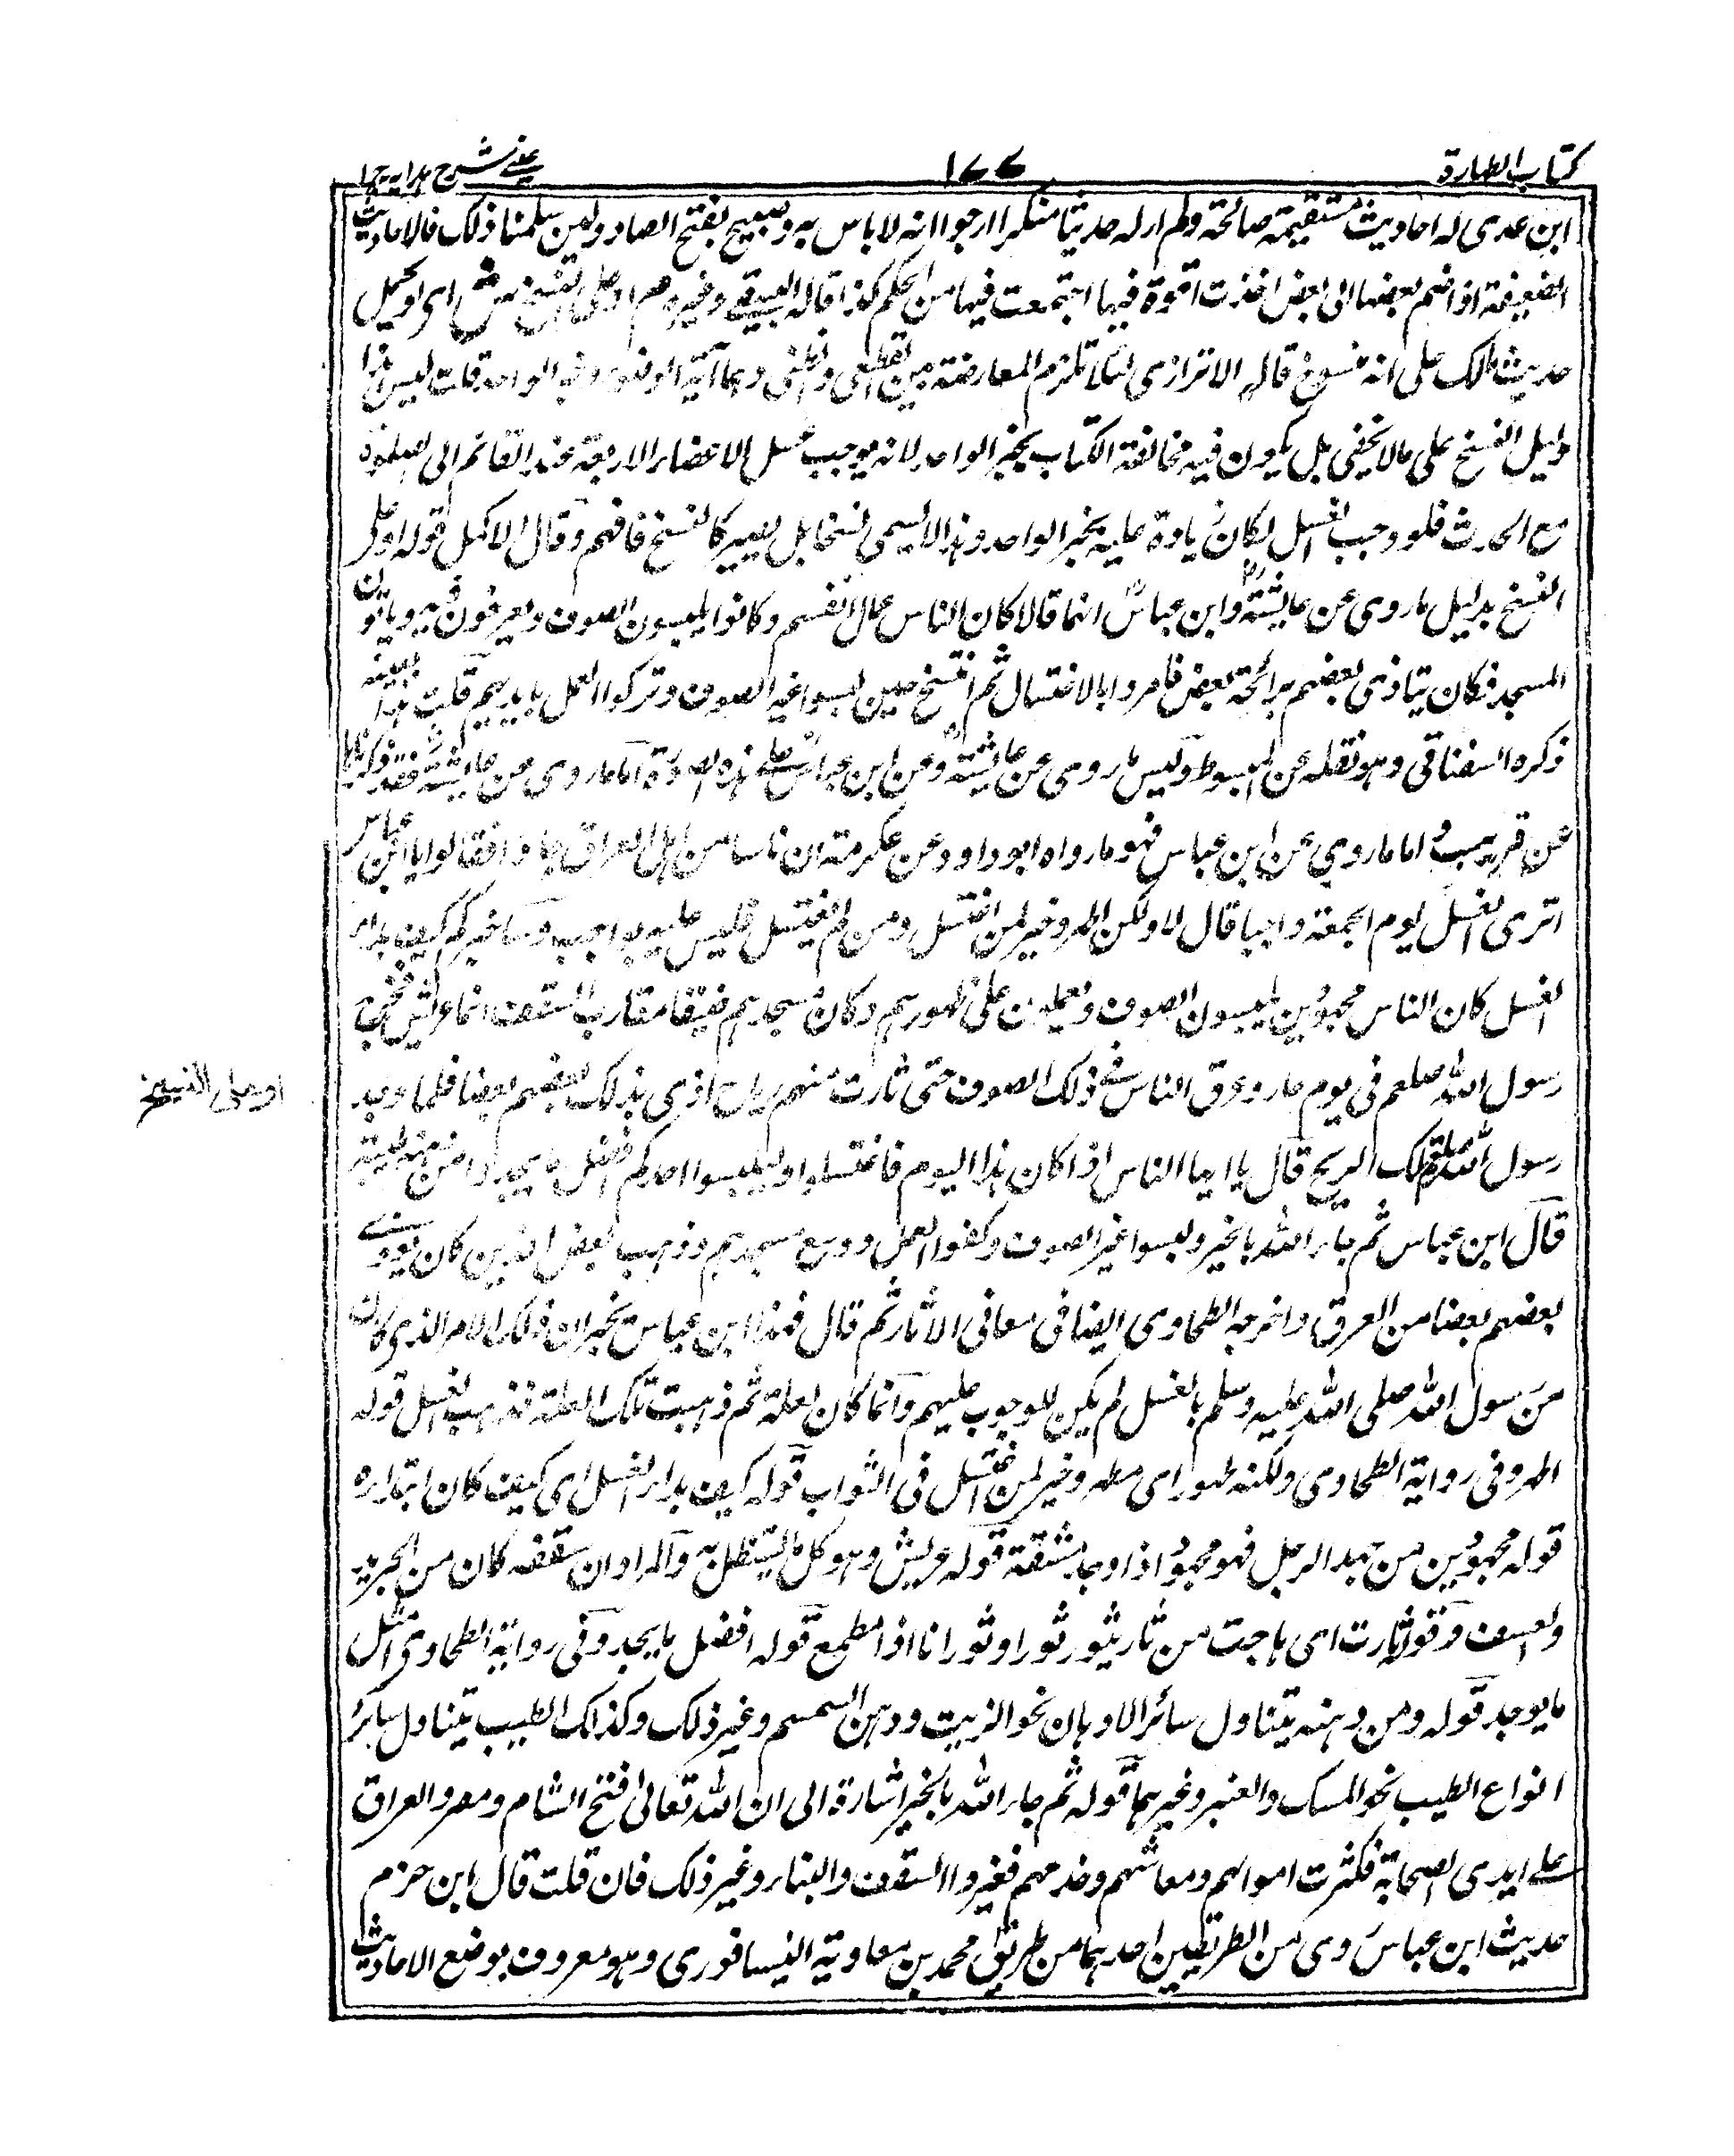 كتاب الطهارة
١٧٧
عينے شرح ہدایہ ج ١
ابن عدى له احاديث مستقيمة صالحة ولم ار له حديثا منكرا ارجو انه لا باس به وصبيح بفتح الصاد ولئن سلمنا ذلك فالاحاديث
الضعيفة اذا ضم بعضها الى بعض اخذت قوة فيها اجتمعت فيها من الحكم كذا قاله البيهقي وغيره م او على النسخ ش اى او يحمل
حديث مالك على انه منسوخ قاله الاترازى لئلا تلزم المعارضة بين القطعى والظنى وهما آية الوضوء وخبر الواحد قلت ليس هذا
دليل النسخ على ما لا يخفى بل يكون فيه مخالفة الكتاب بخبر الواحد لانه يوجب غسل الاعضاء الاربعة عند القائم الى الصلوة
مع الحدث فلو وجب الغسل لكان زيادة عليه بخبر الواحد وهذا لا يسمى نسخا بل يصير كالنسخ فافهم وقال الاكمل قوله او على
النسخ بدليل ما روى عن عايشةؓ وابن عباسؓ انهما قالا كان الناس عمال انفسهم وكانوا يلبسون الصوف ويعرقون فيه وياتون
المسجد فكان يتاذى بعضهم برائحة بعض فامروا بالاغتسال ثم انتسخ حين لبسوا غير الصوف وتركوا العمل بايديهم قلت هذا بعينه
ذكره السغناقى وهو نقله عن المبسوط وليس ما روى عن عايشةؓ وعن ابن عباسؓ على هذه الصورة اما ما روى عن عايشةؓ فقد ذكرناه
عن قريب واما ما روي عن ابن عباس فهو ما رواه ابو داود عن عكرمة ان ناسا من اهل العراق جاؤا فقالوا يا ابن عباس
اترى الغسل يوم الجمعة واجبا قال لا ولكن اطهر وخير لمن اغتسل ومن لم يغتسل فليس عليه بواجب وساخبركم كيف بدأ
الغسل كان الناس مجهودين يلبسون الصوف ويعملون على ظهورهم وكان مسجدهم ضيقا مقارب السقف انما عريش فخرج
رسول الله صلعم فى يوم حار وعرق الناس فے ذلك الصوف حتى ثارت منهم رياح اذى بذلك بعضهم بعضا فلما وجد
رسول الله صلعم تلك الريح قال يا ايها الناس اذا كان هذا اليوم فاغتسلوا وليلبسوا احدكم افضل ما يجد من دهنه وطيبه
قال ابن عباس ثم جاء الله بالخير ولبسوا غير الصوف وكفوا العمل ووسع مسجدهم وذهب بعض الذين كان يوذے
بعضهم بعضا من العرق واخرجه الطحاوى ايضا فى معانى الاثار ثم قال فهذا ابن عباس يخبر ان ذلك الامر الذى كان
من رسول الله صلى الله عليه وسلم بالغسل لم يكن للوجوب عليهم وانما كان لعلة ثم ذهبت تلك العلة فذهب الغسل قوله
اطهر وفى رواية الطحاوى ولكنه طهور اى مطهر وخير لمن اغتسل فى الثواب قوله كيف بدأ الغسل اى كيف كان ابتداءه
قوله مجهودين من جهد الرجل فهو مجهود اذا وجد مشقة قوله عريش وهو كل ما يستظل به والمراد ان سقفه كان من الجريد
والسعف وقوله ثارت اى هاجت من ثار يثور ثورا وثورانا اذا سطع قوله افضل ما يجد وفى رواية الطحاوى امثل
ما يوجد قوله ومن دهنه يتناول سائر الادهان نحو الزيت ودهن السمسم وغير ذلك وكذلك الطيب يتناول سائر
انواع الطيب نحو المسك والعنبر وغيرهما قوله ثم جاء الله بالخير اشارة الى ان الله تعالى فتح الشام ومصر والعراق
علے ايدى الصحابة فكثرت اموالهم ومعاشهم وخدمهم فغيروا السقف والبناء وغير ذلك فان قلت قال ابن حزم
حديث ابن عباس روى من الطريقين احدهما من طريق محمد بن معاوية النيسافورى وهو معروف بوضع الاحاديث
او على النسخ